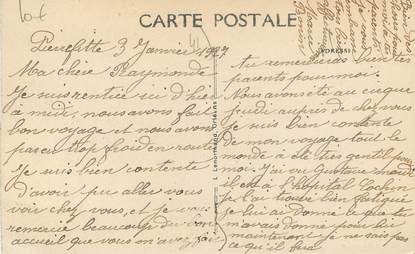 10f
CARTE POSTALE
ADRESSE
Pierrefitte 3 Janvier 1927
Ma chère Raymonde
Je suis rentrée ici d'hier
à midi, nous avons fait
bon voyage et nous avons
pas eu trop froid en route
Je suis bien contente
d'avoir pu aller vous
voir chez vous, et je vous
remercie beaucoup du bon
accueil que vous m'avez fait
tu remercieras bien tes
parents pour moi.
Nous avons été au cirque
jeudi auprès de chez vous
Je suis bien contente
de mon voyage tout le
monde a été très gentil pour
moi; J'ai vu Gustave mardi
il est à l'hôpital Cochin
je l'ai trouvé bien fatigué
je lui ai donné ce que tu
m'avais donné pour lui
maintenant je ne sais pas
ce qu'il